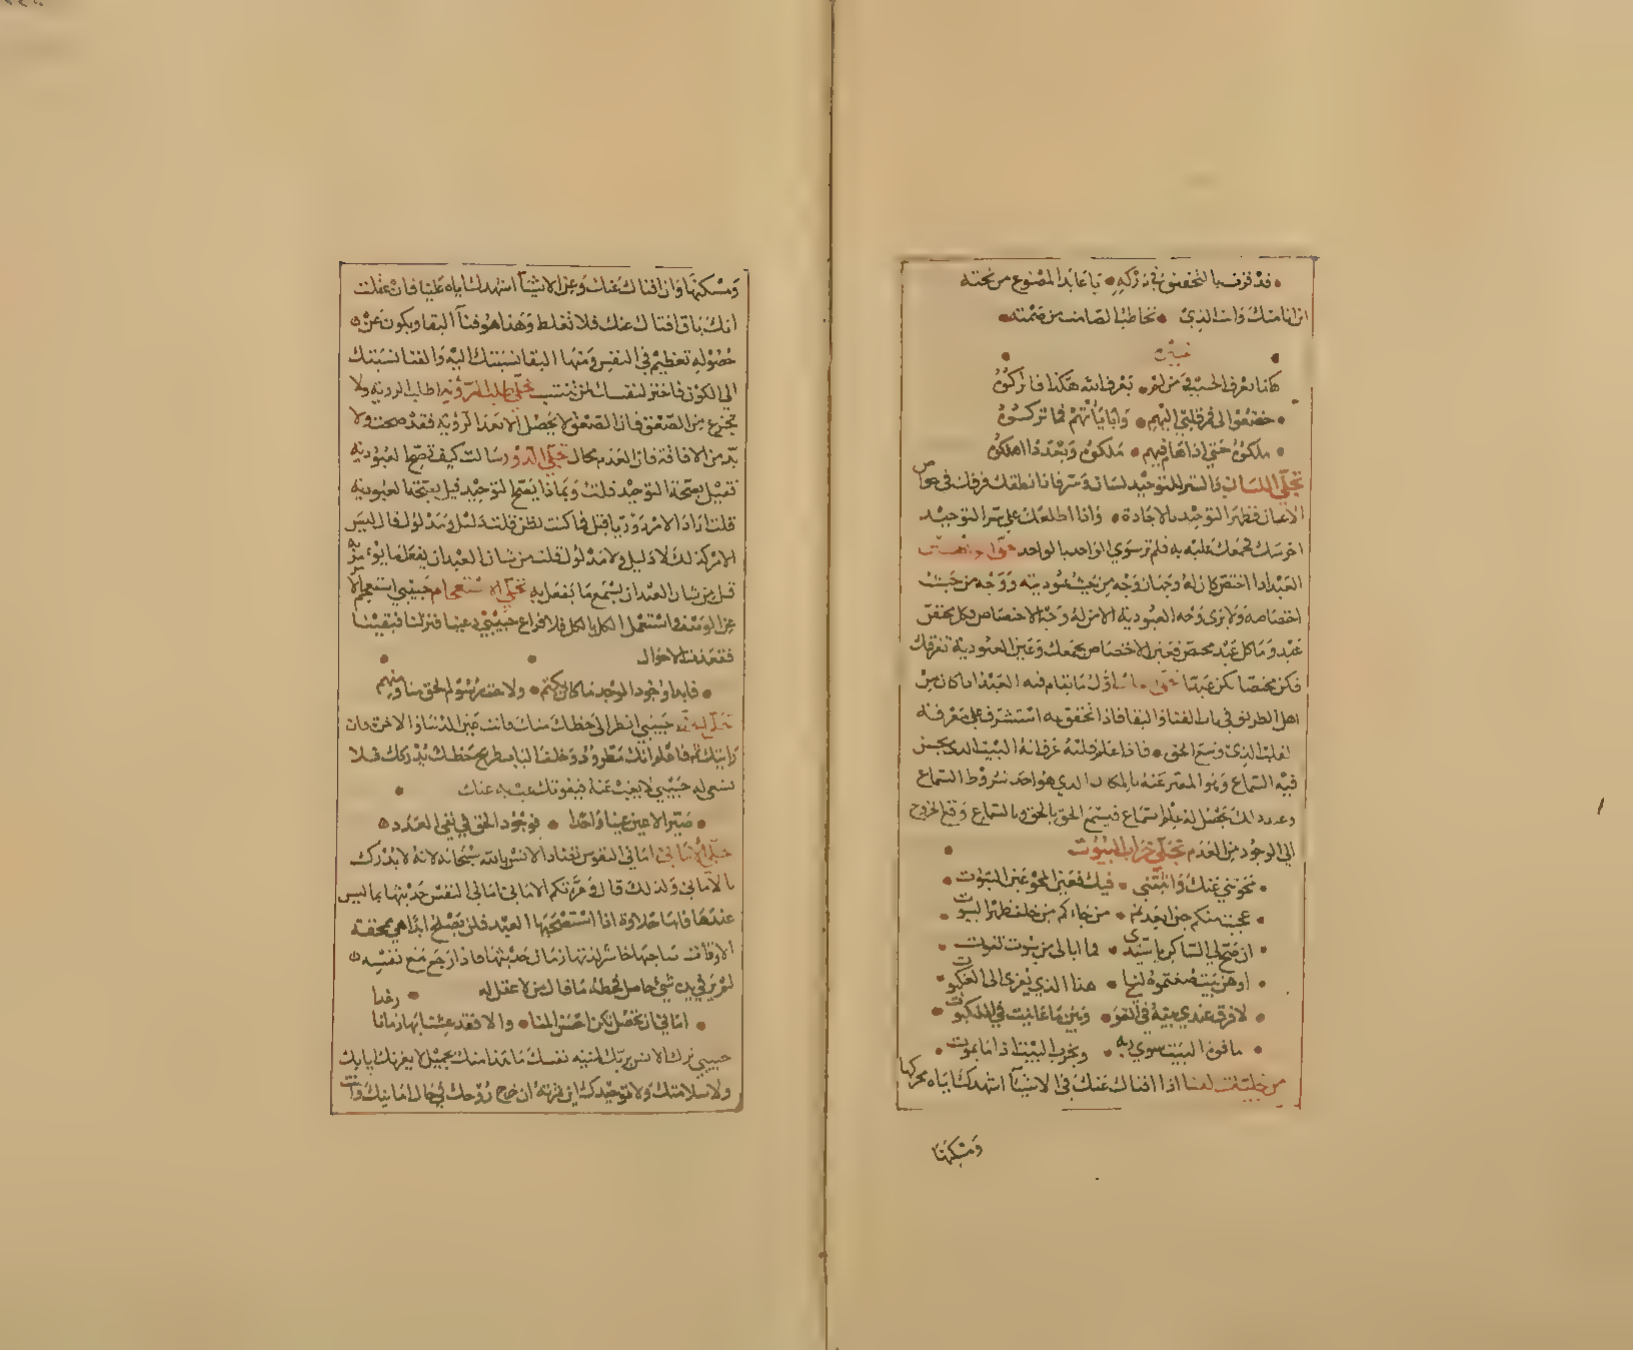 قد فزت بالتحقيق في دركه • يا عابد المصنوع من نحته
انا منك وانت الذي • تخاطب الصامت من صمته
هكذا يعرف الحبيب فمن لم • يعرف الله هكذا فاتركوه
خضعوا لي فرقلبي اليهم • واتاياتهم فما تركوه
ملكوه حتى اذا هام فيهم • ملكوه وبعد ذا اهلكوه
تجلي اللسان والسر للتوحيد لسان وسر فاذا انطقك فرقك في
الاعيان فظهر التوحيد بالاجادة • واذا اطلعك على سر التوحيد
اخرسك فجمعك عليه به فلم تر سوى الواحد بالواحد
العبد اذا اختص كان له وجهان وجه من حيث عبوديته ووجه من حيث
اختصاصه ولا يرى وجه العبودية الا من له وجه الاختصاص فكل مختص
عبد وما كل عبد مختص فعين الاختصاص يجمعك وعين العبودية تفرقك
فكن مختصا تكن عبدا اول مايقام فيه العبد اذا كان من
اهل الطريق في باب الفنا والبقا فاذا تحقق به استشرف على معرفة
القلب الذي وسع الحق • فاذا علم قلبه عرف انه البيت الذي يحسن
فيه السماع وهو المعبر عنه بالمكان الذي هو احد شروط السماع
وعند ذلك يحصل له علم السماع فيسمع الحق بالحق وبالسماع وقع الخروج
الى الوجود من العدم تجلي خراب البيوت
تحوتني عنك واثبتني • فيك فعين المحو عين الثبوت
عجبت منكم حين ابعدتم • من جاءكم من خلف ظهر البيوت
ان صح لي الساكن ياسيدي • فما ابالي من بيوت تفوت
اوهن بيت ضعتموه لنا • هذا الذي يعزى الى العنكبوت
لا فرق عندي بينه في القوى • وبين ما عاينت في الملكوت
ما قوة البيت سوى ربه • ويخرب البيت اذا ما يموت
من تجليات الفنا اذا افناك عنك في الاشيا اشهدك اياه محركها
ومسكنها
ومسكنها وان افناك عنك وعن الاشيا اشهدك اياه عينا فان عقلت
انك باق افناك عنك فلا تغلط وهذا هو فنا البقا ويكون عن
حصوله تعظيم في النفس ومنها البقا نسبتك اليه والفنا نسبتك
الى الكون فاختر لنفسك لمن تنتسب تجلي طلب الرؤية اطلب الروية ولا
تجزع من الصعق فان الصعق لا يحصل الا بعد الرؤية فقد صحت ولا
بد من الافاقة فان العدم محال تجلي الدور سالت كيف تصح العبودية
فقيل بصحة التوحيد قلت وبماذا يصح التوحيد قيل بصحة العبودية
قلت ارى الامر دوريا قيل فما كنت تظن قلت دليل ومدلول قال ليس
الامر كذلك لا دليل ولا مدلول قلت من شان العبد ان يفعل ما يؤمر به
قيل من شان العبد ان يسمع ما يفعل به تجلي الاستعجام حبيبي استعجم الامر
عن الوصف واستعمل الكل بالكل فلا فراغ حبيبي دعينا فنزلنا فبقينا
ففقدت الاحوال
فابدا وجود الوجد ما كان يكتم • ولاحت رسوم الحق منا ومنهم
حبيبي انظر الى حظك منك فانت عين الدنيا والاخرة فان
رايتك ثم فاعلم انك مطرود وخلف الباب مطروح حظك يدركك فلا
تسعى له حبيبي لا يغيب عنه فيفوتك غب به عنك
صير الاعين عينا واحدا • فوجود الحق في نفي العدد
تجلي الاماني اماني النفوس تضاد الانس بالله سبحانه لانه لا يدرك
بالاماني ولذلك قال وغرتكم الاماني اماني النفس حديثها بما ليس
عندها ولها حلاوة اذا استصحبها العبد فلن يفلح ابدا هي ممحقة
الاوقات صاحبها خاسر لذتها زمان حديثها فاذا رجع مع نفسه
لم ير في يده شيء حاصل فحظه ما قال من لا عقل له
اماني ان تحصل تكن احسن المنا • والا فقد عشنا بها زمنا رغدا
حبيبي ترك الانس بربك لمنية نفسك ما هذا منك بجميل لا يغرنك ايمانك
ولا اسلامك ولا توحيدك اين ثمرته ان خرج روحك في حال امانيك وانت